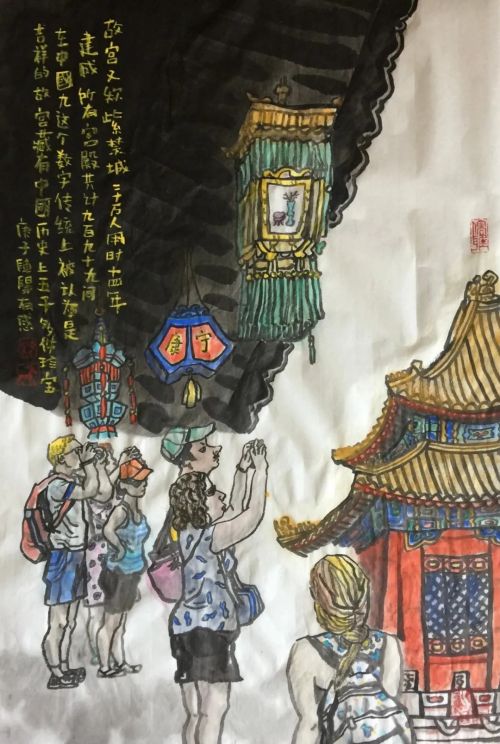 故宫又称紫禁城三十万人用时十四年
建成所有宫殿共计九百九十九间
在中國九这个数字传统上被认为是
吉祥的故宫藏有中國历史上五千多件珍宝
庚子
康宁